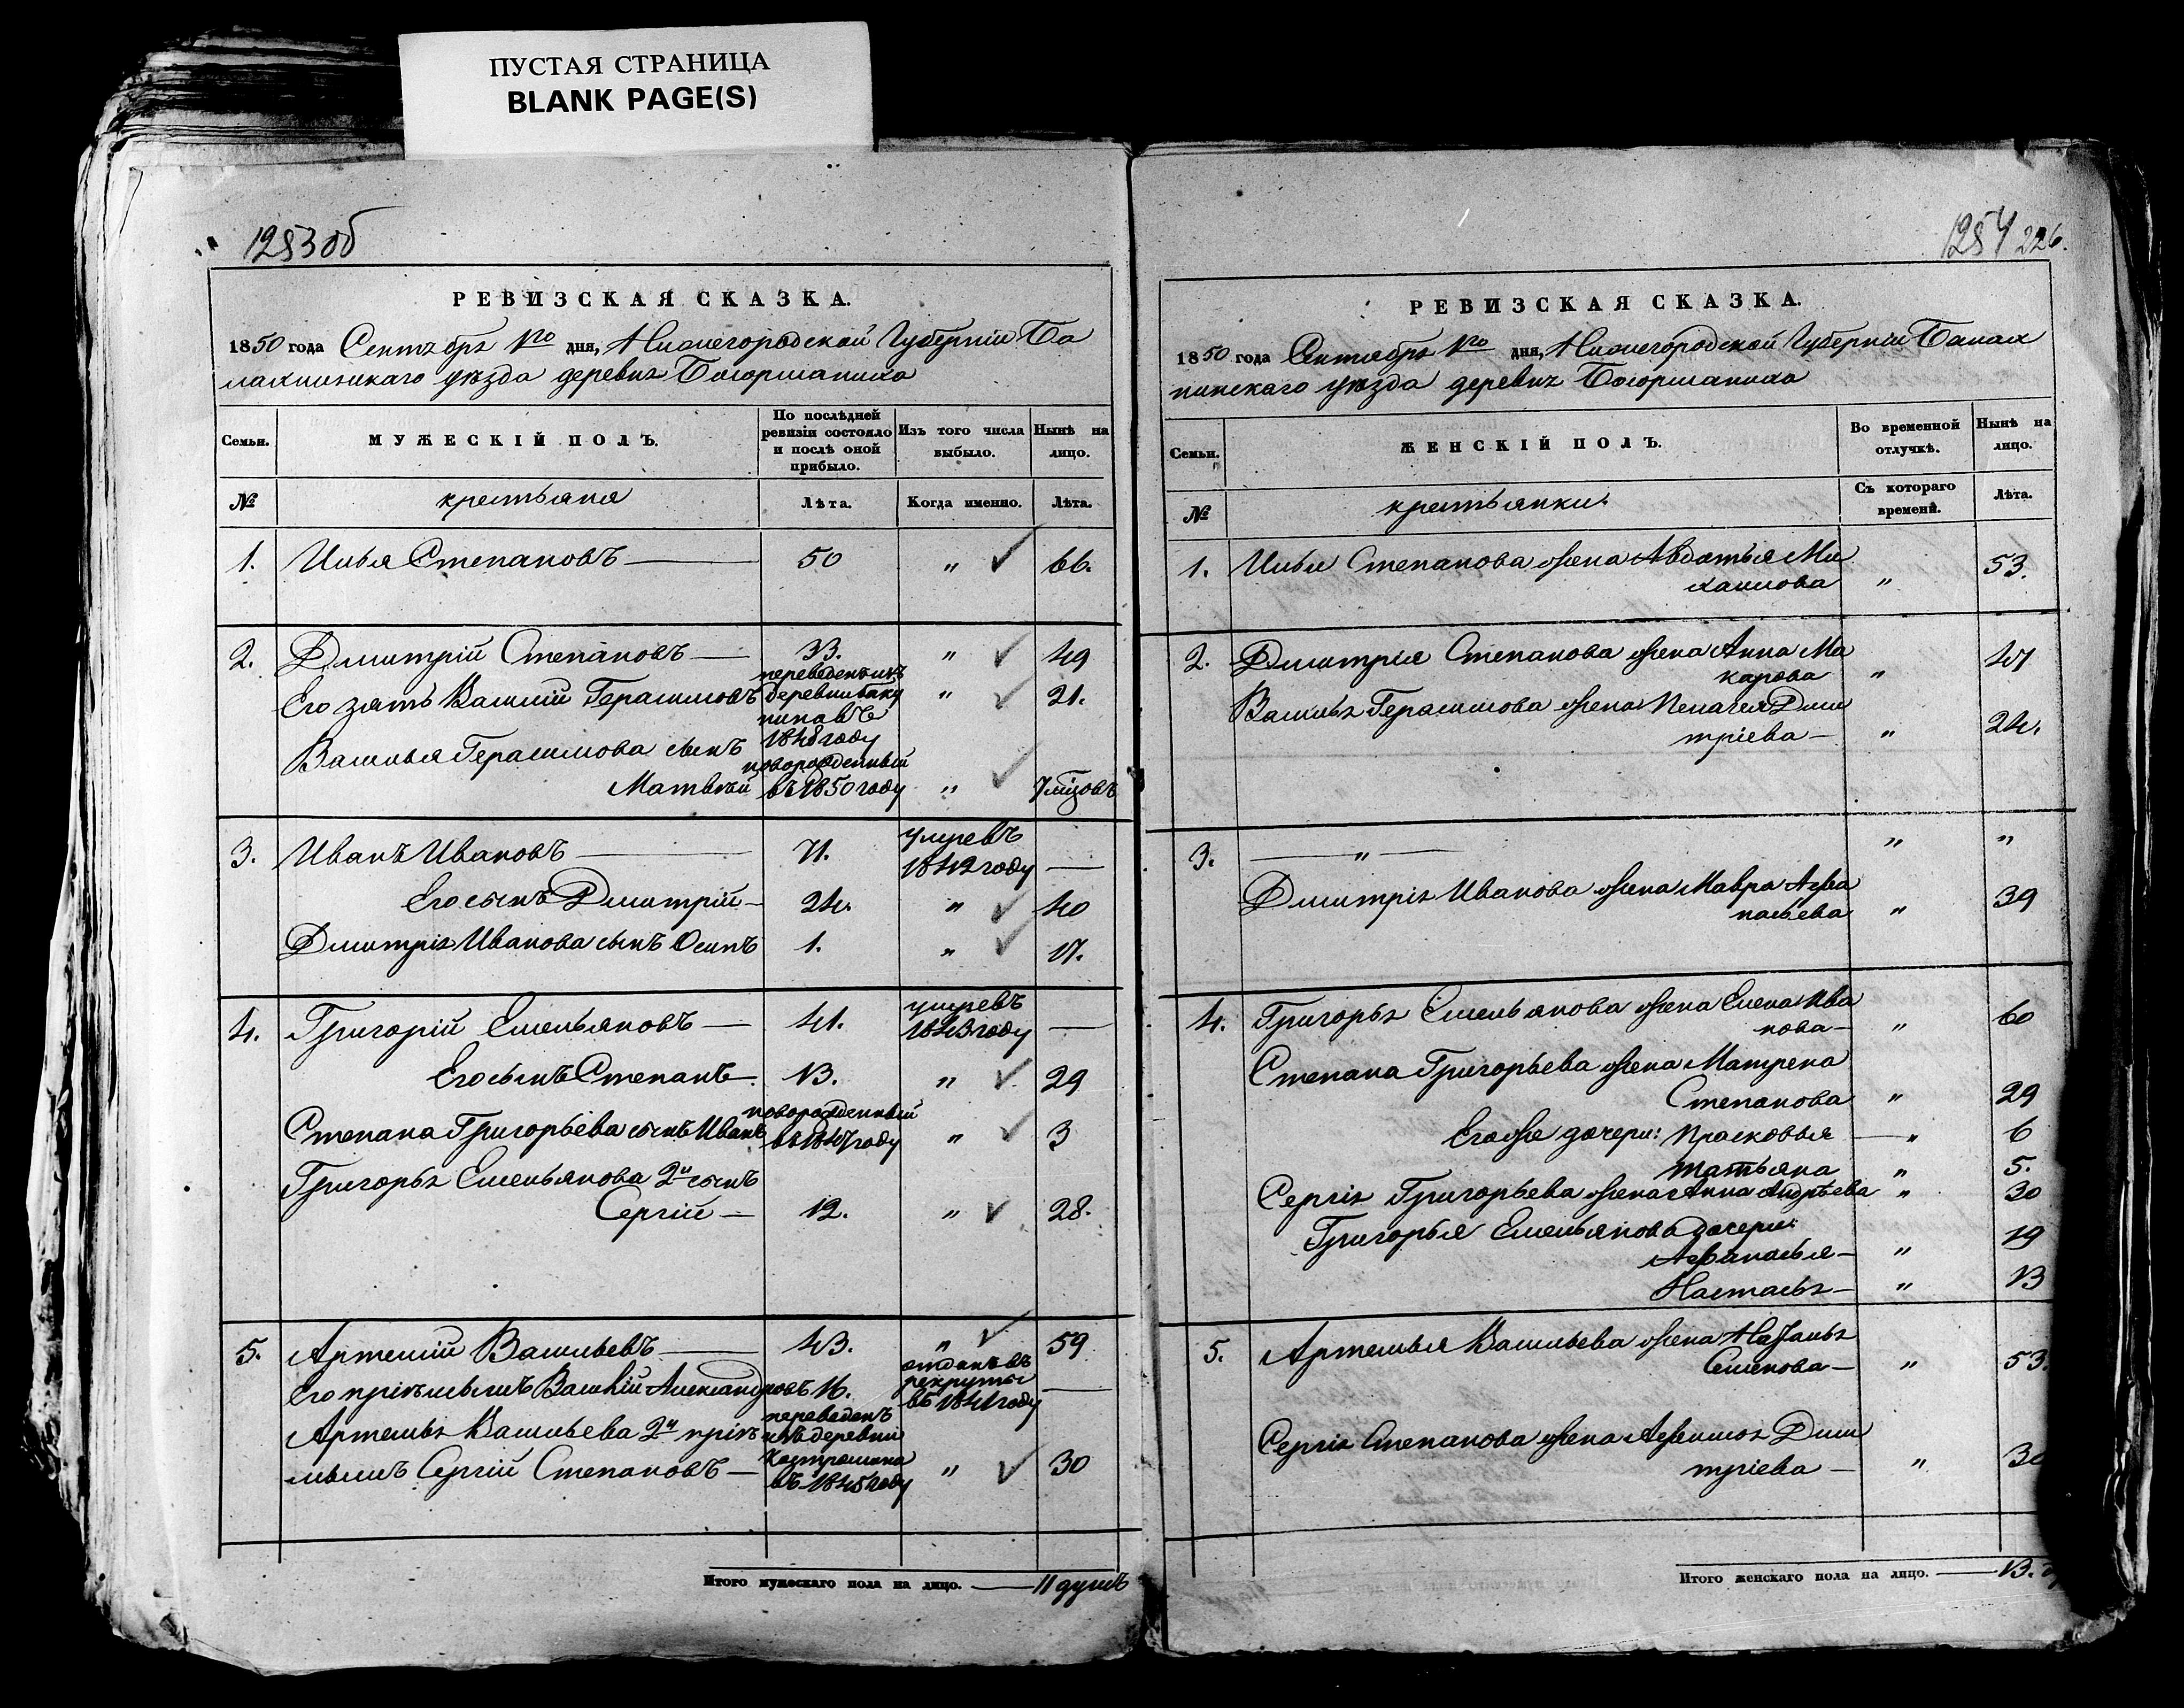 ПУСТАЯ СТРАНИЦА
BLANK PAGE(S)
1253 об
РЕВИЗСКАЯ СКАЗКА.
1850 года Сентября 1го дня, Нижегородской Губернии Ба
лахнинскаго уѣзда деревня
Семьи.
МУЖЕСКІЙ ПОЛЪ.
По послѣдней ревизіи состояло и послѣ оной прибыло.
Изъ того числа выбыло.
Нынѣ на лицо.
№
крестьяня
Лѣта.
Когда именно.
Лѣта.
1. Илья Степановъ — 50 „ 66.
2. Дмитрій Степановъ — 33. „ 49
Его зять Василій Герасимовъ переведенъ изъ деревни
въ 1848 году „ 21.
Василья Герасимова сынъ
Матвѣй новорожденный въ 1850 году „ 7 мѣсцовъ
3. Иванъ Ивановъ — 71. умре въ 1842 году —
Его сынъ Дмитрій — 24. „ 40
Дмитрія Иванова сынъ Осипъ 1. „ 17.
4. Григорій Емельяновъ — 41. умре въ 1843 году —
Его сынъ Степанъ — 13. „ 29
Степана Григорьева сынъ Иванъ новорожденный въ 1847 году „ 3
Григорья Емельянова 2й сынъ
Сергій — 12. „ 28.
5. Артемій Васильевъ — 43. „ 59
Его пріемышъ Василій Александровъ 16. отданъ въ рекруты въ 1841 году —
Артемья Васильева 2й пріе
мышъ Сергій Степановъ — переведенъ изъ деревни
въ 1845 году „ 30
Итого мужескаго пола на лицо. — 11 душъ
1254 226.
РЕВИЗСКАЯ СКАЗКА.
1850 года Сентября 1го дня, Нижегородской Губерніи Балах
нинскаго уѣзда деревня
Семьи.
ЖЕНСКІЙ ПОЛЪ.
Во временной отлучкѣ.
Нынѣ на лицо.
№
крестьянки.
Съ котораго времени.
Лѣта.
1. Ильи Степанова жена Авдотья Ми
хаилова „ 53.
2. Дмитрія Степанова жена Анна Ма
карова „ 47
Василья Герасимова жена Пелагея Дми
тріева — „ 24.
3. — „ — „ „
Дмитрія Иванова жена Мавра Афа
насьева „ 39
4. Григорья Емельянова жена Елена Ива
нова — „ 60
Степана Григорьева жена Матрена
Степанова „ 29
Его же дочери: Прасковья — „ 6
Татьяна „ 5.
Сергія Григорьева жена Анна Андрѣева „ 30
Григорья Емельянова дочери:
Афанасья — „ 19
Настасья — „ 13
5. Артемья Васильева жена Наталья
Семенова — „ 53.
Сергія Степанова жена Афимья Дми
тріева — „ 30
Итого женскаго пола на лицо. — 13.